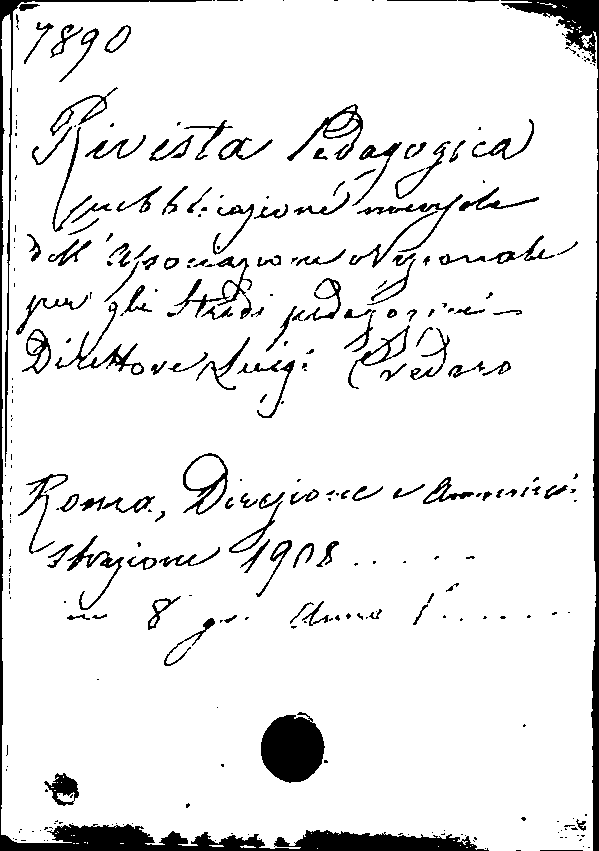 7890
Rivista Pedagogica
pubblicazione mensile
dell'Associazione Nazionale
per gli Studi pedagogici -
Direttore Luigi Credaro
Roma, Direzione e Ammini-
strazione 1908......
in 8 gr. Anno 1°.......